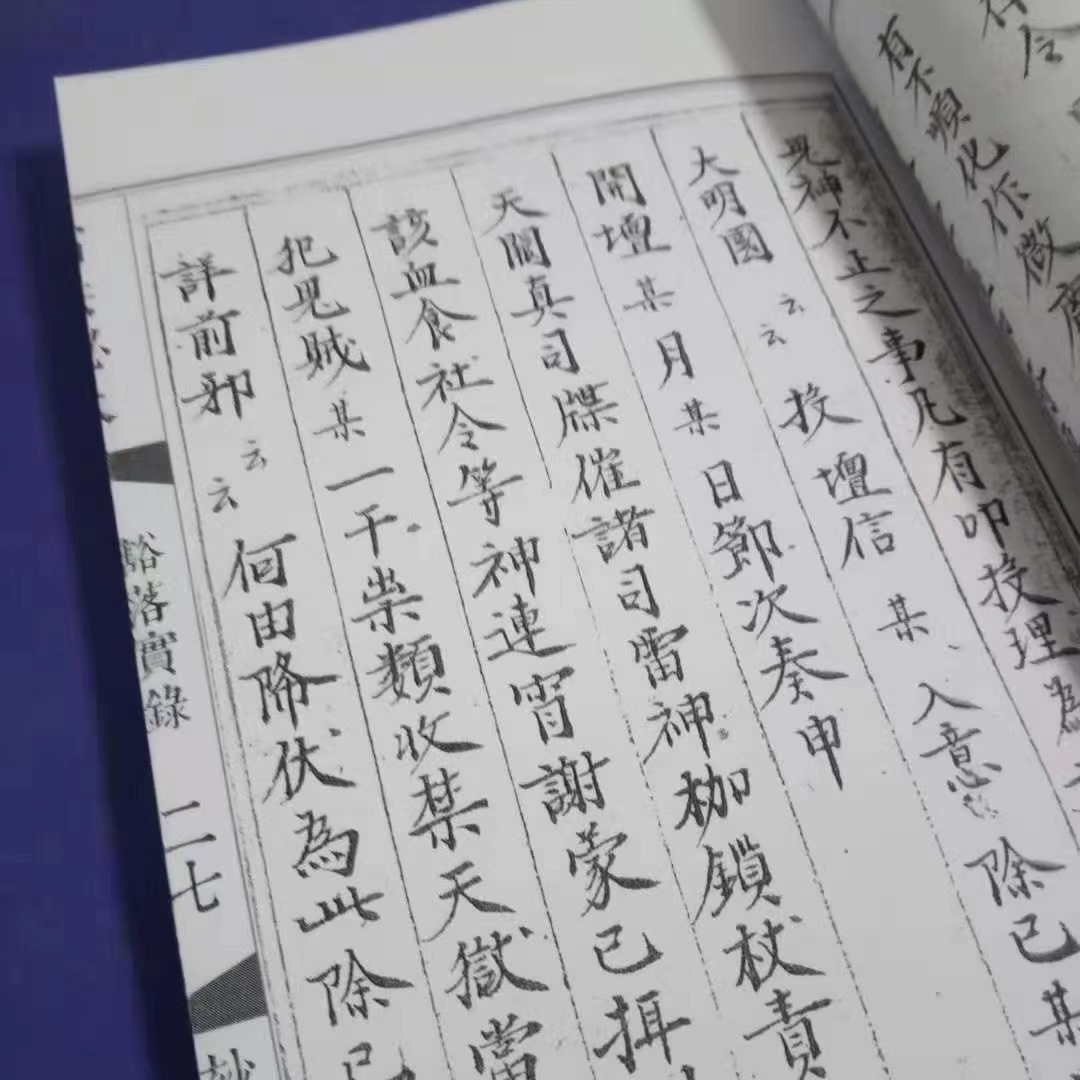 有不順化作微
鬼神不正之事凡有叩投理為
大明國云云投壇信某入意除已某
開壇某月某日節次奏申
天闕真司牒催諸司雷神枷鎖杖責
該血食社令等神連宵謝蒙已
犯鬼賊某一干祟類收禁天獄當
詳前邪云云何由降伏為此除已
豁落實錄
二七